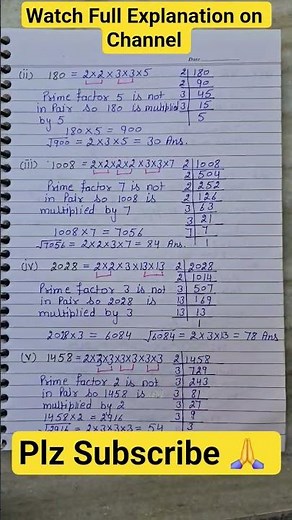 Watch Full Explanation on
Channel
(ii) 180 = 2×2×3×3×5
2 | 180
2 | 90
3 | 45
3 | 15
5
Prime factor 5 is not
in Pair so 180 is multiplied
by 5
180×5 = 900
√900 = 2×3×5 = 30 Ans.
(iii) 1008 = 2×2×2×2×3×3×7
2 | 1008
2 | 504
2 | 252
2 | 126
3 | 63
3 | 21
7 | 7
1
Prime factor 7 is not
in Pair so 1008 is
multiplied by 7
1008×7 = 7056
√7056 = 2×2×3×7 = 84 Ans.
(iv) 2028 = 2×2×3×13×13
2 | 2028
2 | 1014
3 | 507
13 | 169
13 | 13
1
Prime factor 3 is not
in Pair so 2028 is
multiplied by 3
2028×3 = 6084 √6084 = 2×3×13 = 78 Ans
(v) 1458 = 2×3×3×3×3×3×3
2 | 1458
3 | 729
3 | 243
3 | 81
3 | 27
3 | 9
3
Prime factor 2 is not
in Pair so 1458 is
multiplied by 2
1458×2 = 2916
√2916 = 2×3×3×3 = 54
Plz Subscribe 🙏